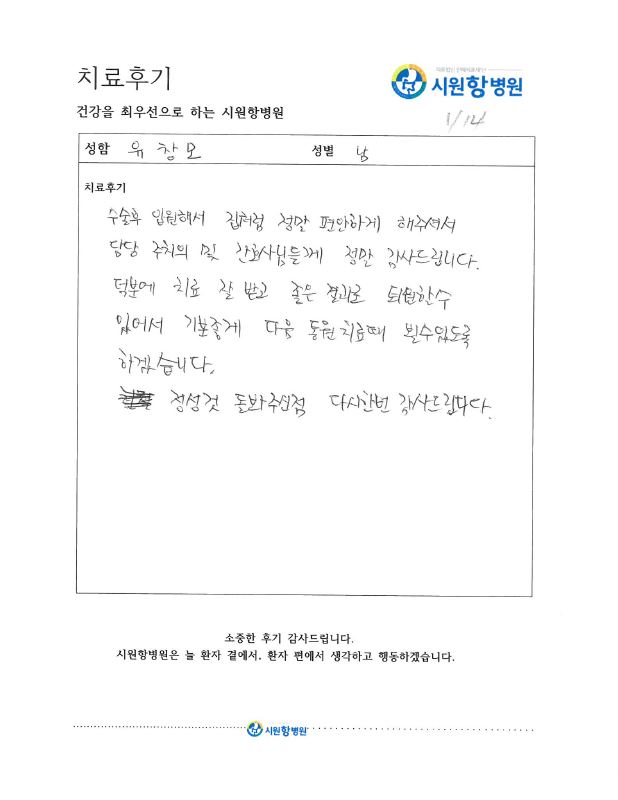 치료후기
시원항병원
건강을 최우선으로 하는 시원항병원
1/14
성함 유창모 성별 남
치료후기
수술후 입원해서 집처럼 정말 편안하게 해주셔서
담당 주치의 및 간호사님들께 정말 감사드립니다.
덕분에 치료 잘 받고 좋은 결과로 퇴원할수
있어서 기분좋게 다음 통원치료때 뵐수있도록
하겠습니다.
정성껏 돌봐주신점 다시한번 감사드립니다.
소중한 후기 감사드립니다.
시원항병원은 늘 환자 곁에서, 환자 편에서 생각하고 행동하겠습니다.
시원항병원